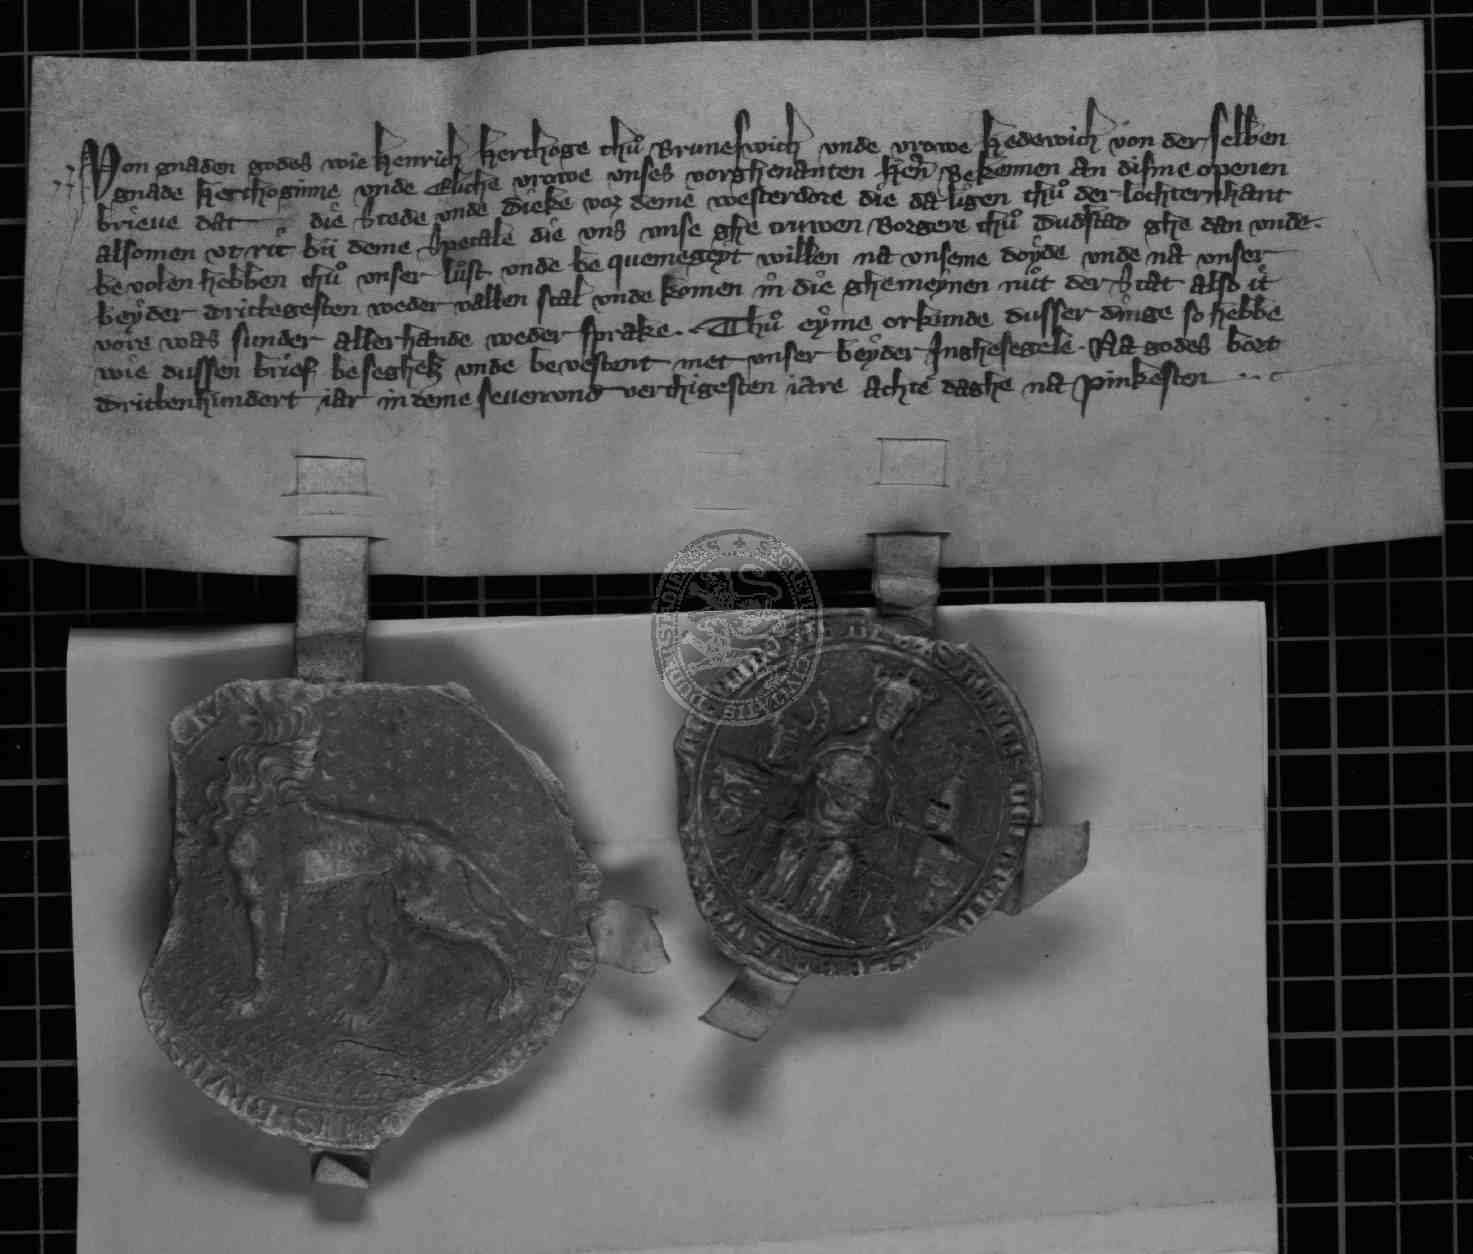 Von gnaden godes wie Henrich Herthoge thů Bruneswich vnde vrowe Hedewich von der selben
gnade Herthoginne vnde eliche vrowe vnses vorghenanten Hern̄ Bekennen an disme openen
brieue dat die Stede vnde dieke vor deme westerdore die da ligen thů der lochtern hant
alsomen vt rit bii deme Spetale die vns vnse ghe truwen Borgere thů Dudstad ghe dan vnde
be volen hebben thů vnser lůst vnde be quemegeyt willen na vnseme doyde vnde na vnser
beyder drittegesten weder vallen scal vnde komen in die ghemeynen nůt der Stat also it
vore was sunder allerhande weder sprake. Thů eyme orkunde dusser dinge so hebbe
wie dussen brief beseghelt vnde bevestent met vnser beyder Inghesegele. Na godes bort
drittenhundert iar in deme seuenvnd verthigesten iare achte daghe na Pinkesten
SECRETUM CIVITATIS DUDERSTADIENSIS